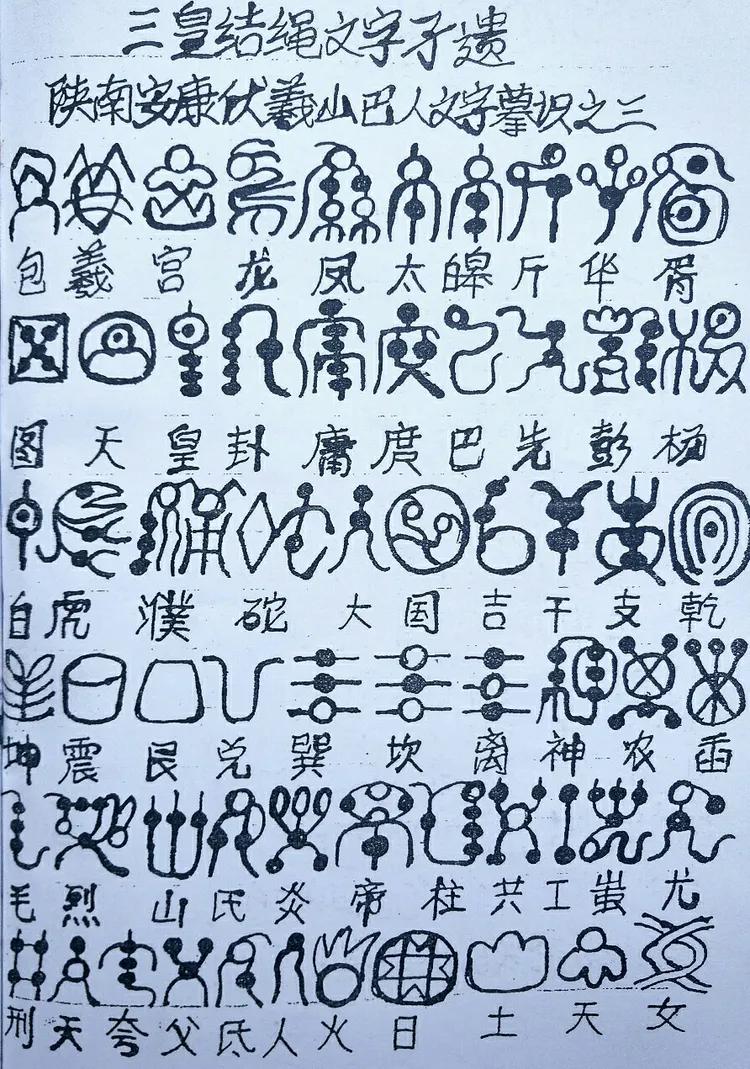 三皇结绳文字孑遗
陕南安康伏羲山巴人文字摹识之三
包羲宫龙凤太皞斤华胥
图天皇卦庸庹巴先彭杨
自虎濮砣大国吉干支乾
坤震艮兑巽坎离神农臿
毛烈山氏炎帝柱共工蚩尤
刑天夸父氐人火日土天女